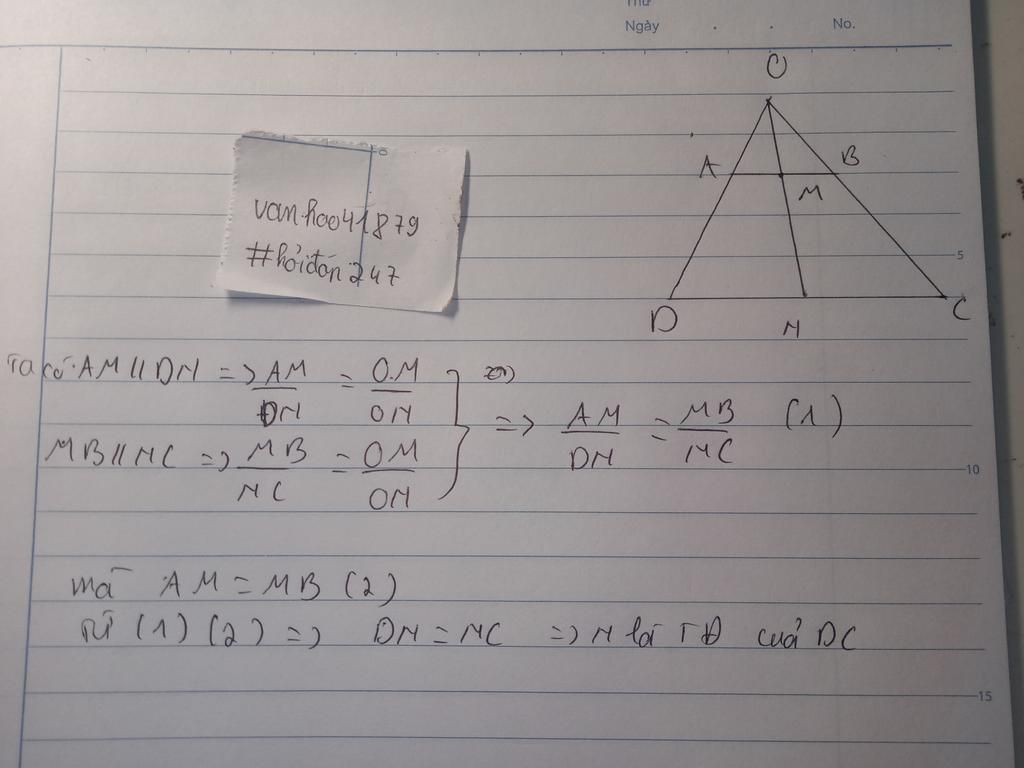 Thứ
Ngày . . No.
O
A B
M
D N C
5
vanhao41879
#hỏiđáp247
Ta có: AM // DN => AM/DN = OM/ON
MB // NC => MB/NC = OM/ON
=> AM/DN = MB/NC (1)
10
mà AM = MB (2)
Từ (1) (2) => DN = NC => N là TĐ của DC
15